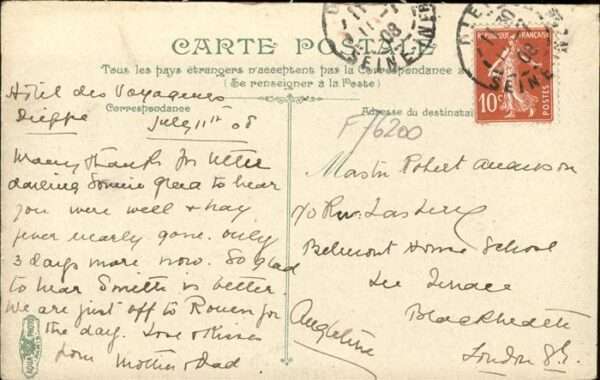 CARTE POSTALE
Tous les pays étrangers n'acceptent pas la Correspondance a
(Se renseigner à la Poste)
Correspondance
Adresse du destinatai
Hôtel des Voyageurs
Dieppe
July 11th 08
Many thanks for letter
darling Sonnie glad to hear
you were well & hay
fever nearly gone. only
3 days more now. So glad
to hear Smith is better
We are just off to Rouen for
the day. Love & Kisses
from Mother & Dad
F 76200
Mastr Robert
c/o Rev.
Belmont House School
Lee Terrace
Blackheath
London S.E.
Angleterre
10c
POSTES
DIEPPE
08
SEINE INF